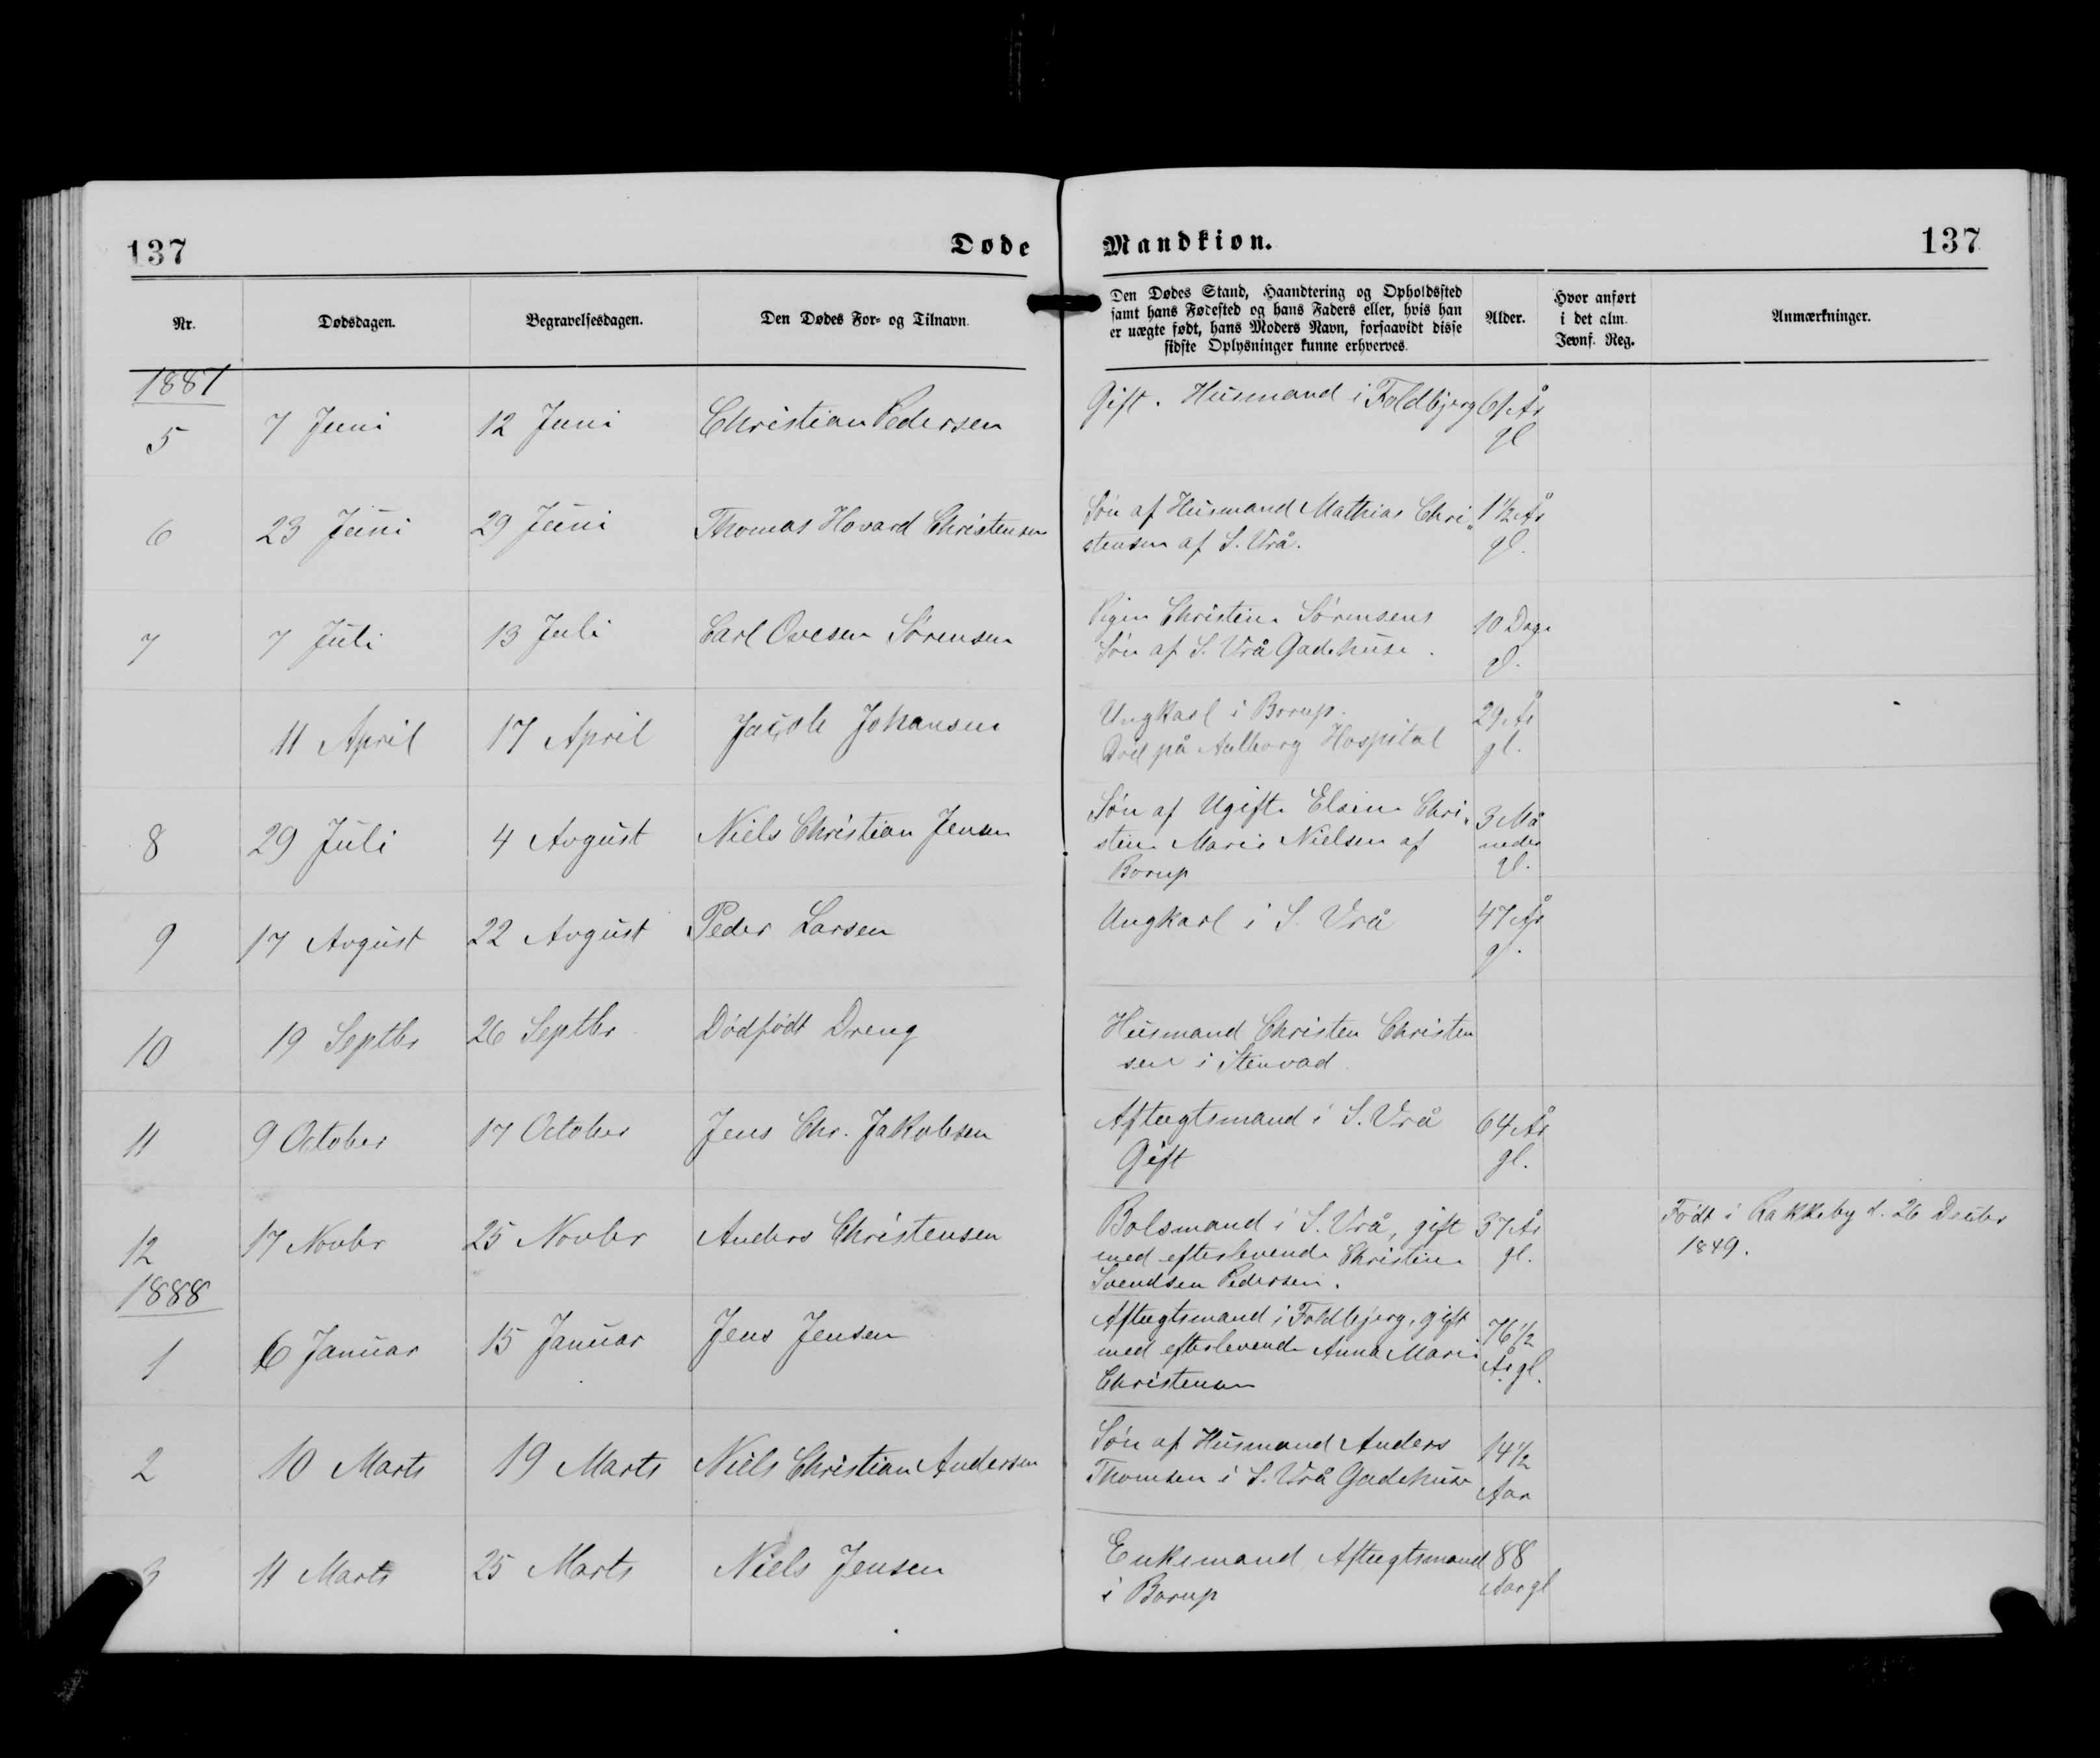 137 Døde Mandkiøn. 137
Nr. Dødsdagen. Begravelsesdagen. Den Dødes For- og Tilnavn.
Den Dødes Stand, Haandtering og Opholdssted
samt hans Fødested og hans Faders eller, hvis han
er uægte født, hans Moders Navn, forsaavidt disse
sidste Oplysninger kunne erhverves.
Alder.
Hvor anført
i det alm.
Jevnf. Reg.
Anmærkninger.
1887
5 7 Juni 12 Juni Christian Pedersen
Gift. Husmand i Foldbjerg
61 År
gl
6 23 Juni 29 Juni Thomas Hovard Christensen
Søn af Husmand Mathias Chri-
stensen af S. Vrå.
1½ År
gl.
7 7 Juli 13 Juli Carl Ovesen Sørensen
Pigen Christine Sørensens
Søn af S. Vrå Gadehuse.
10 Dage
gl.
11 April 17 April Jacob Johansen
Ungkarl i Borup.
Død på Aalborg Hospital
29 År
gl.
8 29 Juli 4 Avgust Niels Christian Jensen
Søn af Ugifte Elsine Chri-
stine Marie Nielsen af
Borup
3 Må
neder
gl.
9 17 Avgust 22 Avgust Peder Larsen
Ungkarl i S. Vrå
47 År
gl.
10 19 Septbr 26 Septbr Dødfødt Dreng
Husmand Christen Christen
sen i Stenvad
11 9 October 17 October Jens Chr. Jakobsen
Aftægtsmand i S. Vrå
Gift
64 År
gl.
12 17 Novbr 25 Novbr Anders Christensen
Bolsmand i S. Vrå, gift
med efterlevende Christine
Svendsen Pedersen.
37 År
gl.
Født i Rakkeby d. 26 Decbr
1849.
1888
1 6 Januar 15 Januar Jens Jensen
Aftægtsmand i Foldbjerg, gift
med efterlevende Anna Marie
Christensen
76½
År gl.
2 10 Marts 19 Marts Niels Christian Andersen
Søn af Husmand Anders
Thomsen i S. Vrå Gadehuse
14½
Aar
3 11 Marts 25 Marts Niels Jensen
Enkemand Aftægtsmand
i Borup
88
Aar gl